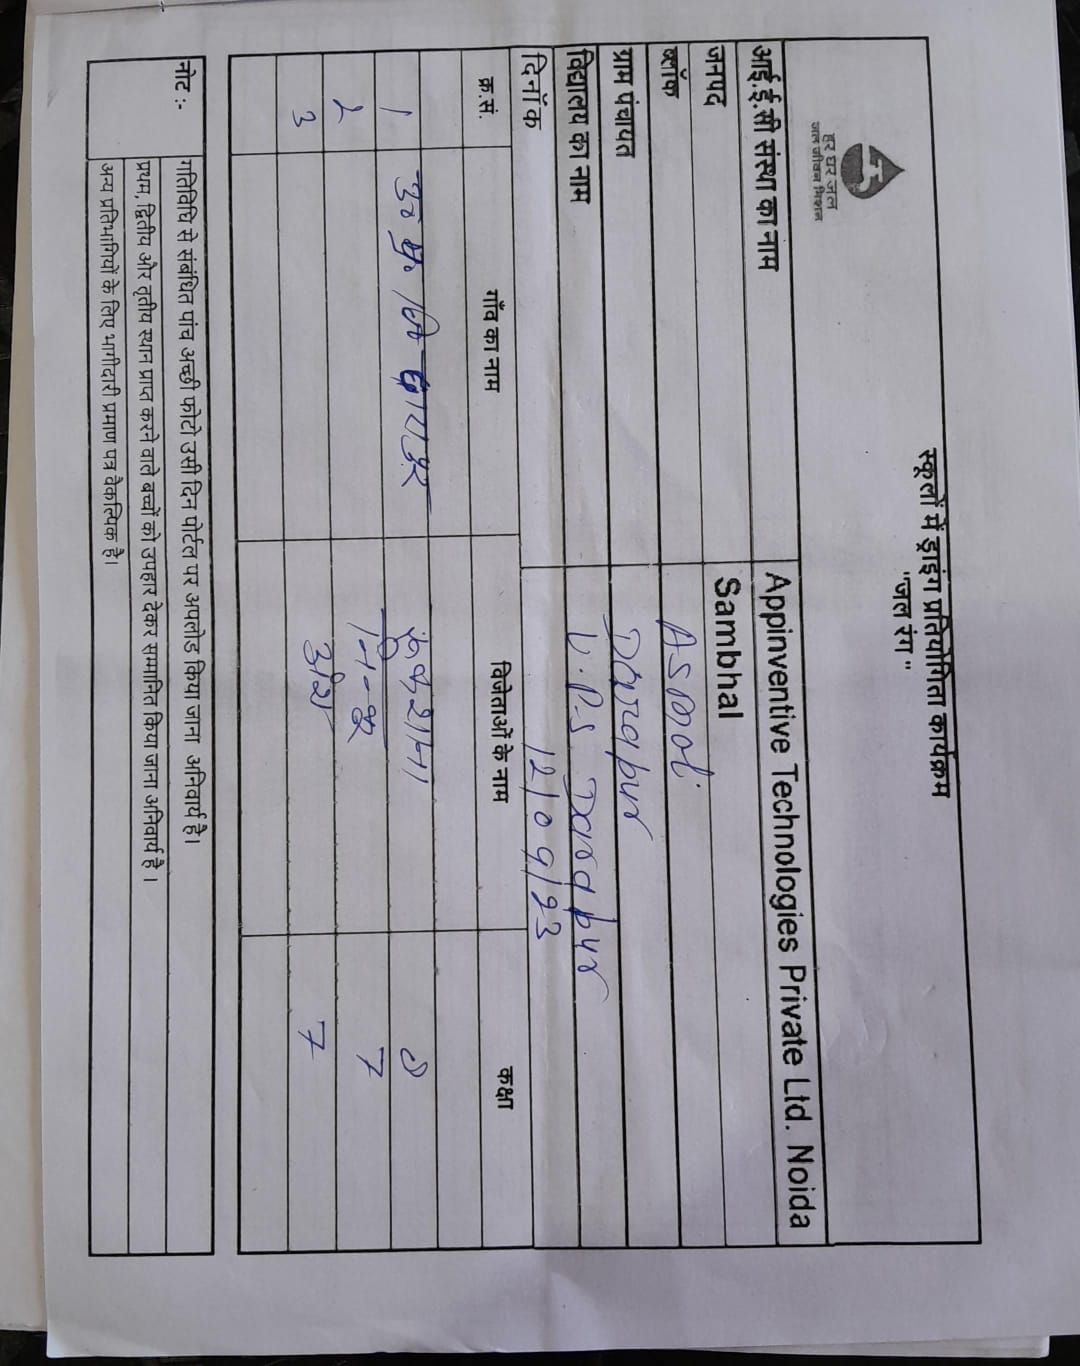 स्कूलों में ड्राइंग प्रतियोगिता कार्यक्रम
"जल रंग"
हर घर जल
जल जीवन मिशन
आई.ई.सी संस्था का नाम Appinventive Technologies Private Ltd. Noida
जनपद Sambhal
ब्लॉक Asmoli
ग्राम पंचायत Darapur
विद्यालय का नाम U.P.S Darapur
दिनाँक 12/09/23
क्र.सं. गाँव का नाम विजेताओं के नाम कक्षा
1 8
2 7
3 7
नोट :- गतिविधि से संबंधित पांच अच्छी फोटो उसी दिन पोर्टल पर अपलोड किया जाना अनिवार्य है।
प्रथम, द्वितीय और तृतीय स्थान प्राप्त करने वाले बच्चों को उपहार देकर सम्मानित किया जाना अनिवार्य है।
अन्य प्रतिभागियों के लिए भागीदारी प्रमाण पत्र वैकल्पिक है।